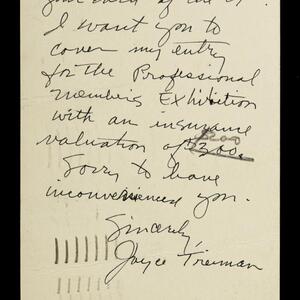 I want you to
cover my entry
for the Professional
Members Exhibition
with an insurance
valuation of $300.
$200
Sorry to have
inconvenienced you.
Sincerely,
Joyce Treiman